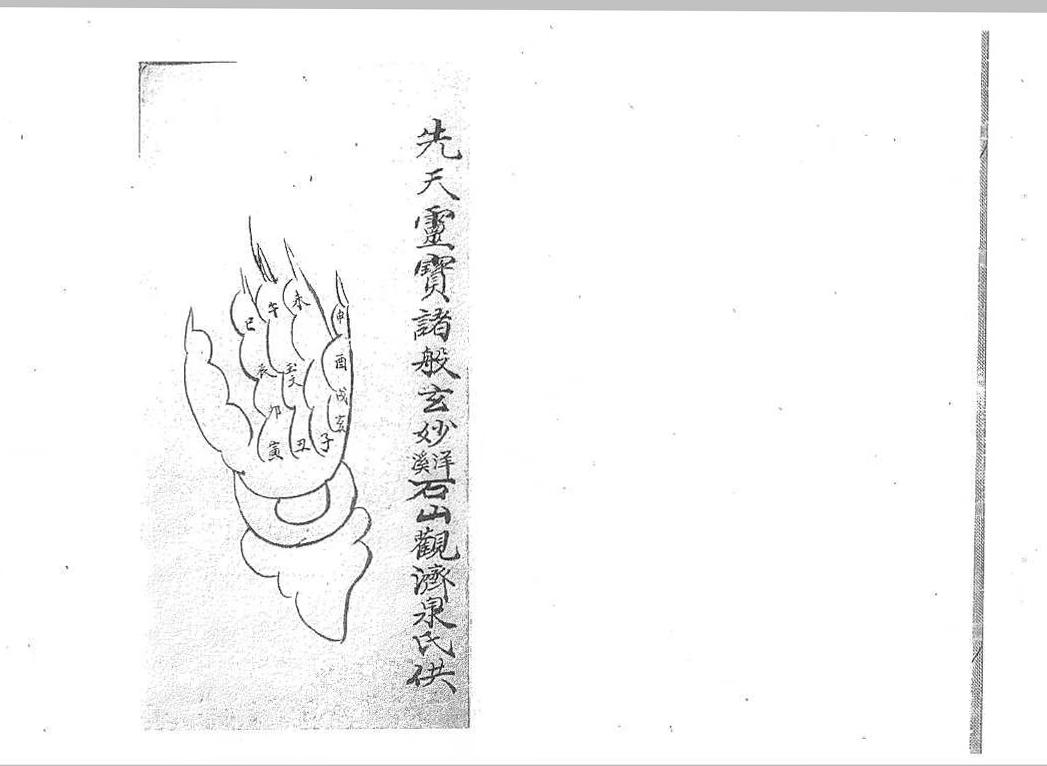 先天靈寶諸般玄妙洋溪石山觀濟泉氏供
巳
午
未
申
酉
戌
亥
子
丑
寅
卯
辰
玉文